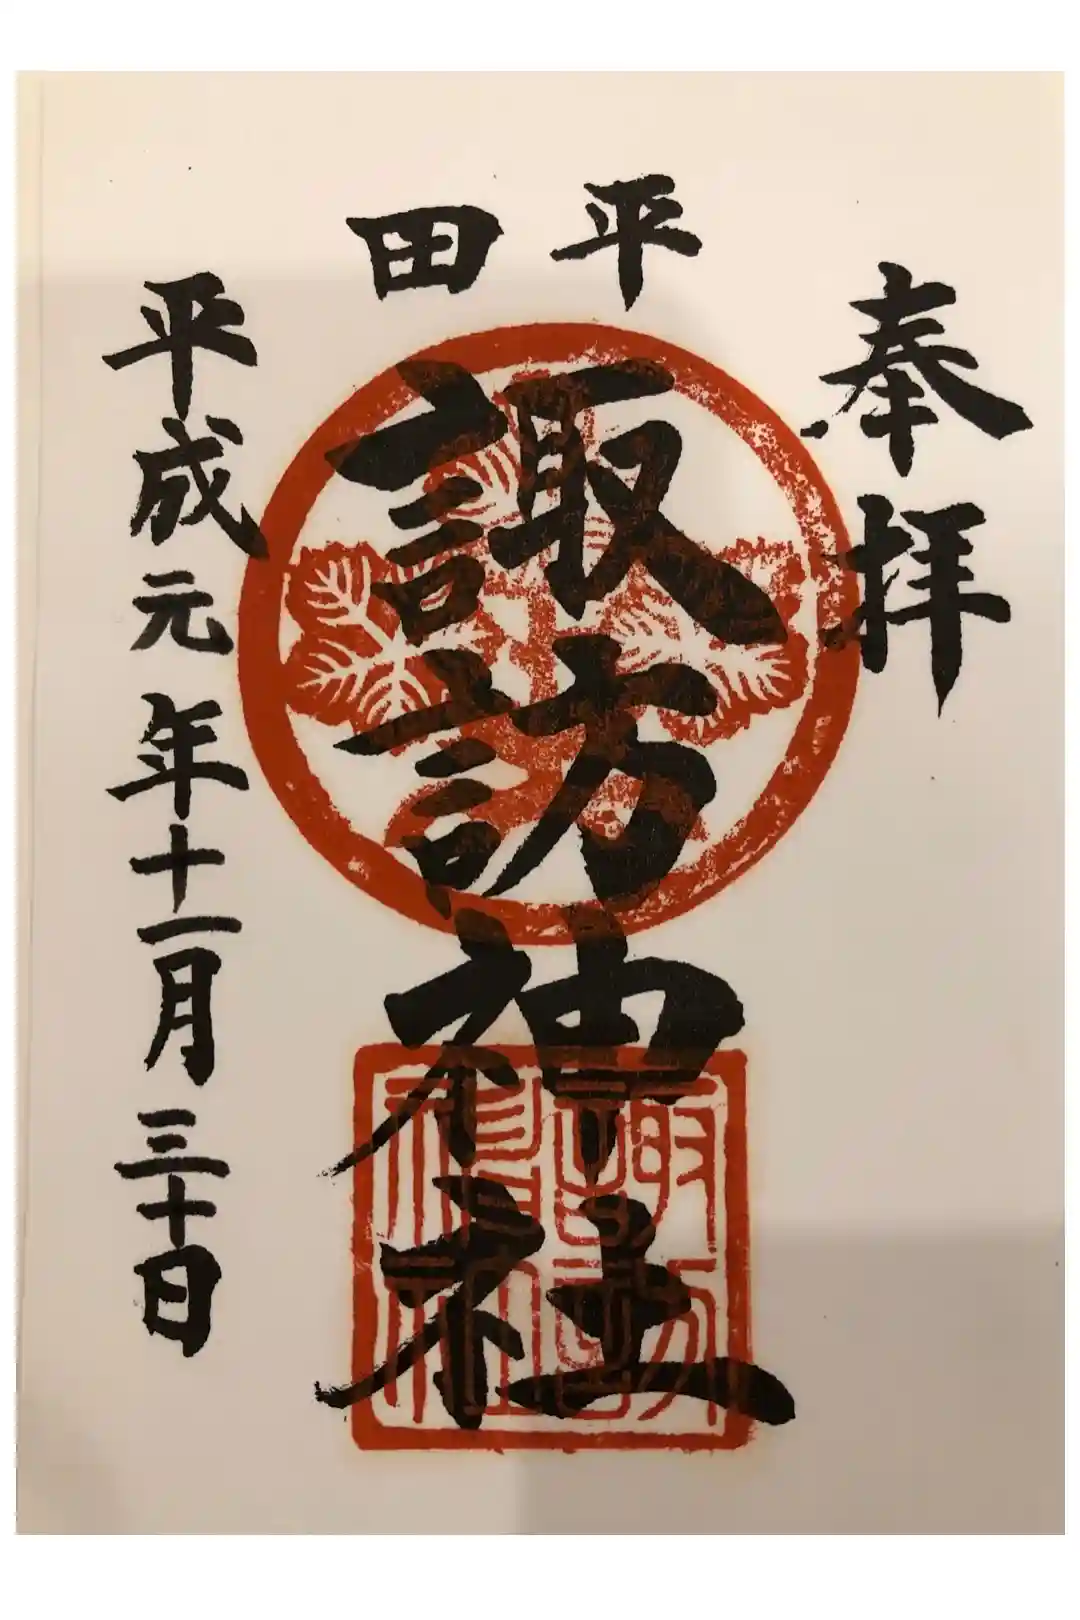 奉拝
平田
諏訪神社
諏訪神社
平成元年十一月三十日